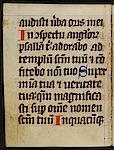 audisti uerba oris mei
In conspectu angelorum
psallam tibi adorabo ad
templum sanctum tuum et con
fitebor nomini tuo Super
misericordia tua et ueritate
tua quoniam magnificasti
super omne nomen
sanctum tuum In quacumque